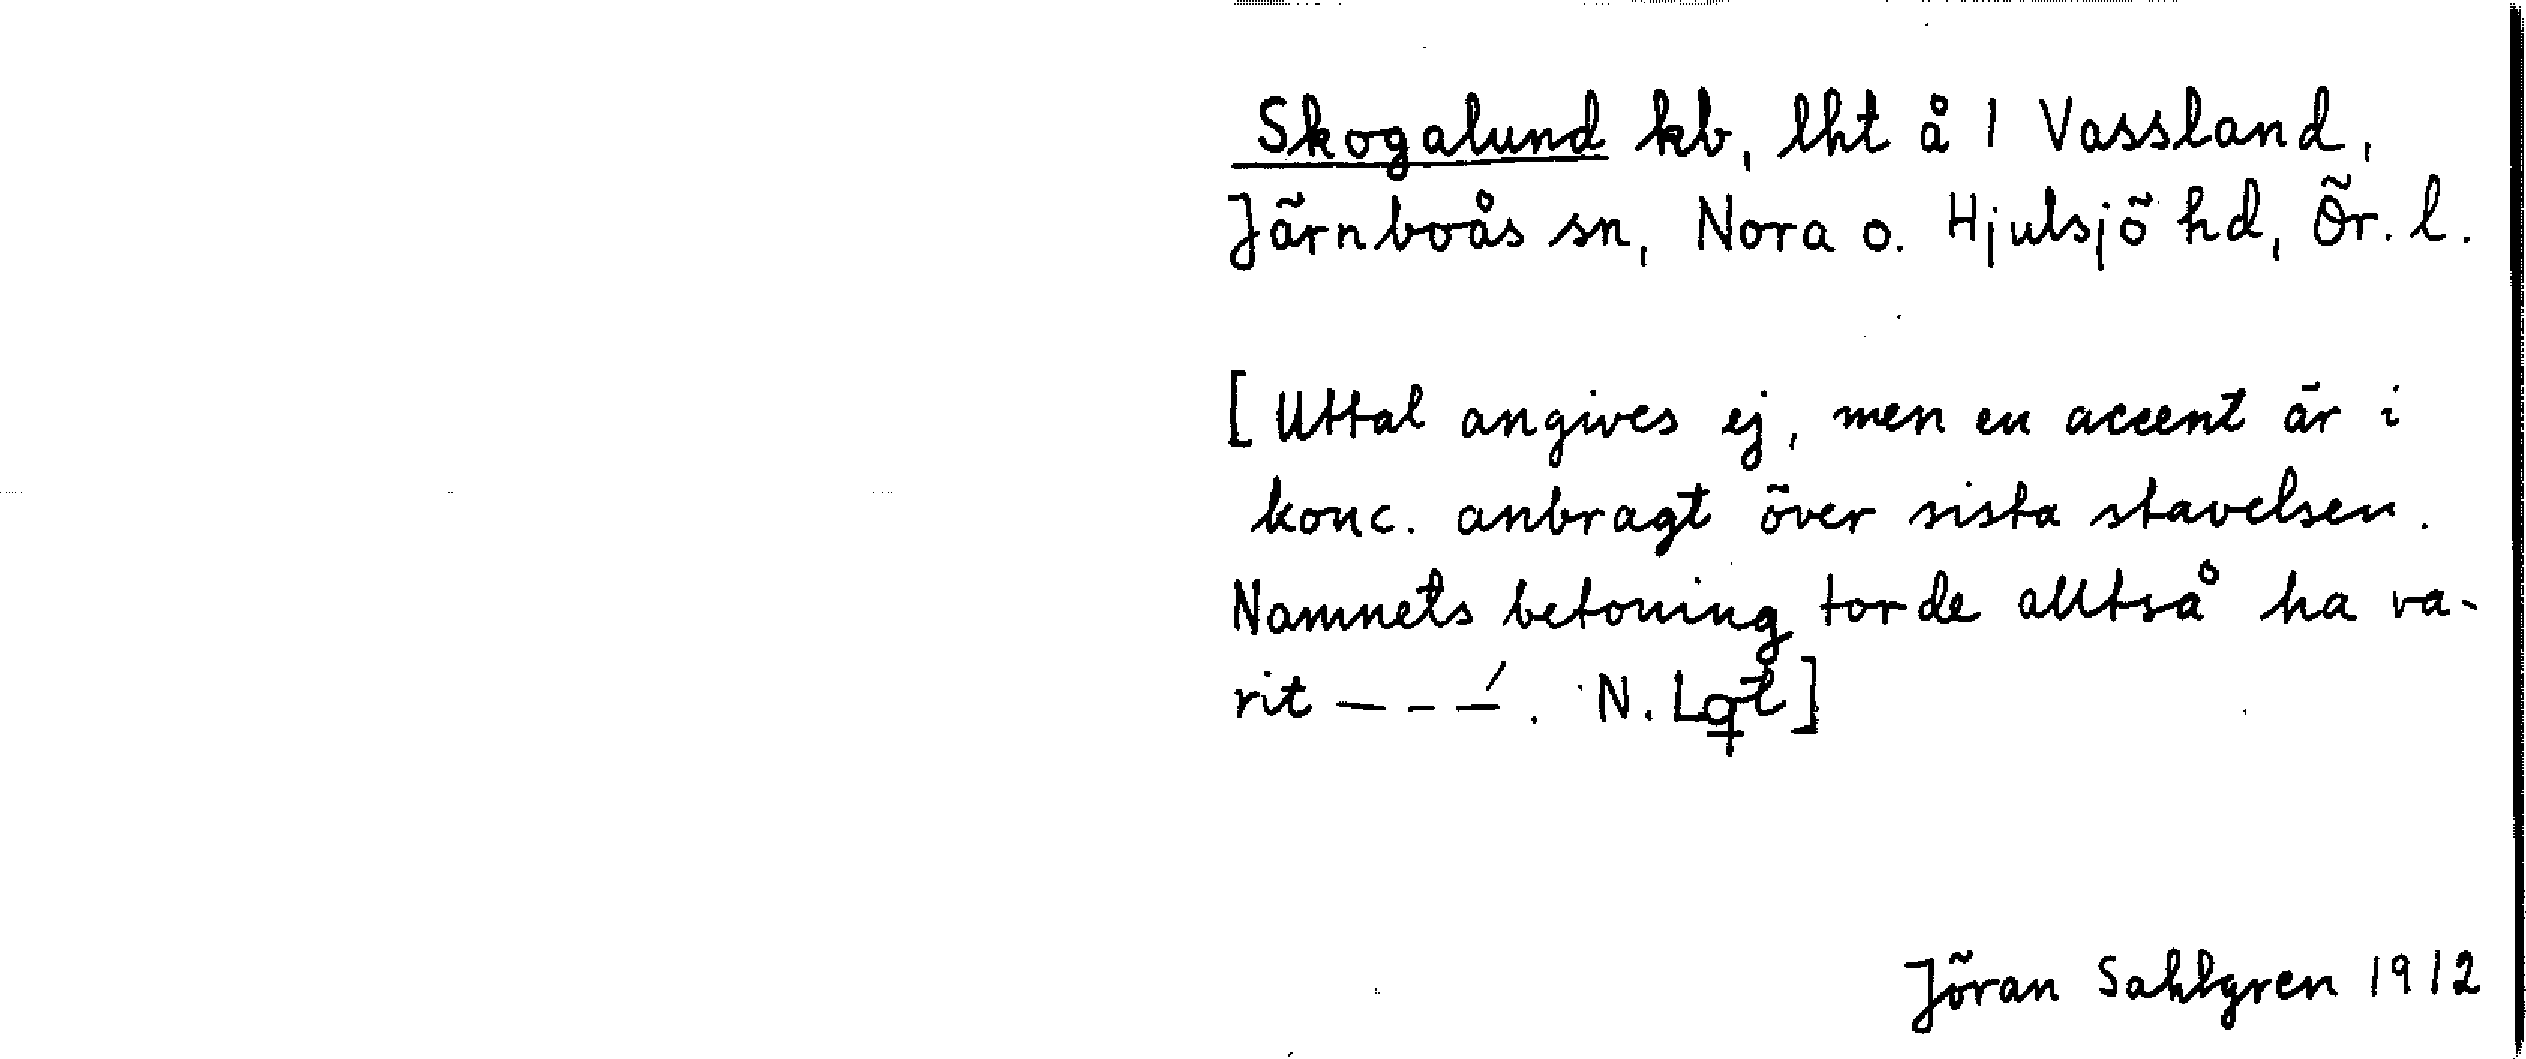 Skogalund kb, lht å 1 Vassland,
Järnboås sn, Nora o. Hjulsjö hd, Ör. l.
[Uttal angives ej, men en accent är i
konc. anbragt över sista stavelsen.
Namnets betoning torde alltså ha va-
rit – - –́. N. Lqt]
Jöran Sahlgren 1912